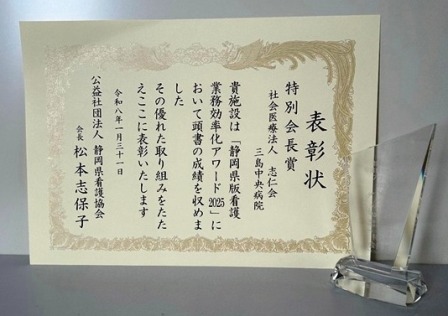 表彰状
特別会長賞
社会医療法人 志仁会
三島中央病院
貴施設は「静岡県版看護
業務効率化アワード2025」に
おいて頭書の成績を収めま
した
その優れた取り組みをたた
えここに表彰いたします
令和八年一月三十一日
公益社団法人 静岡県看護協会
会長 松本志保子